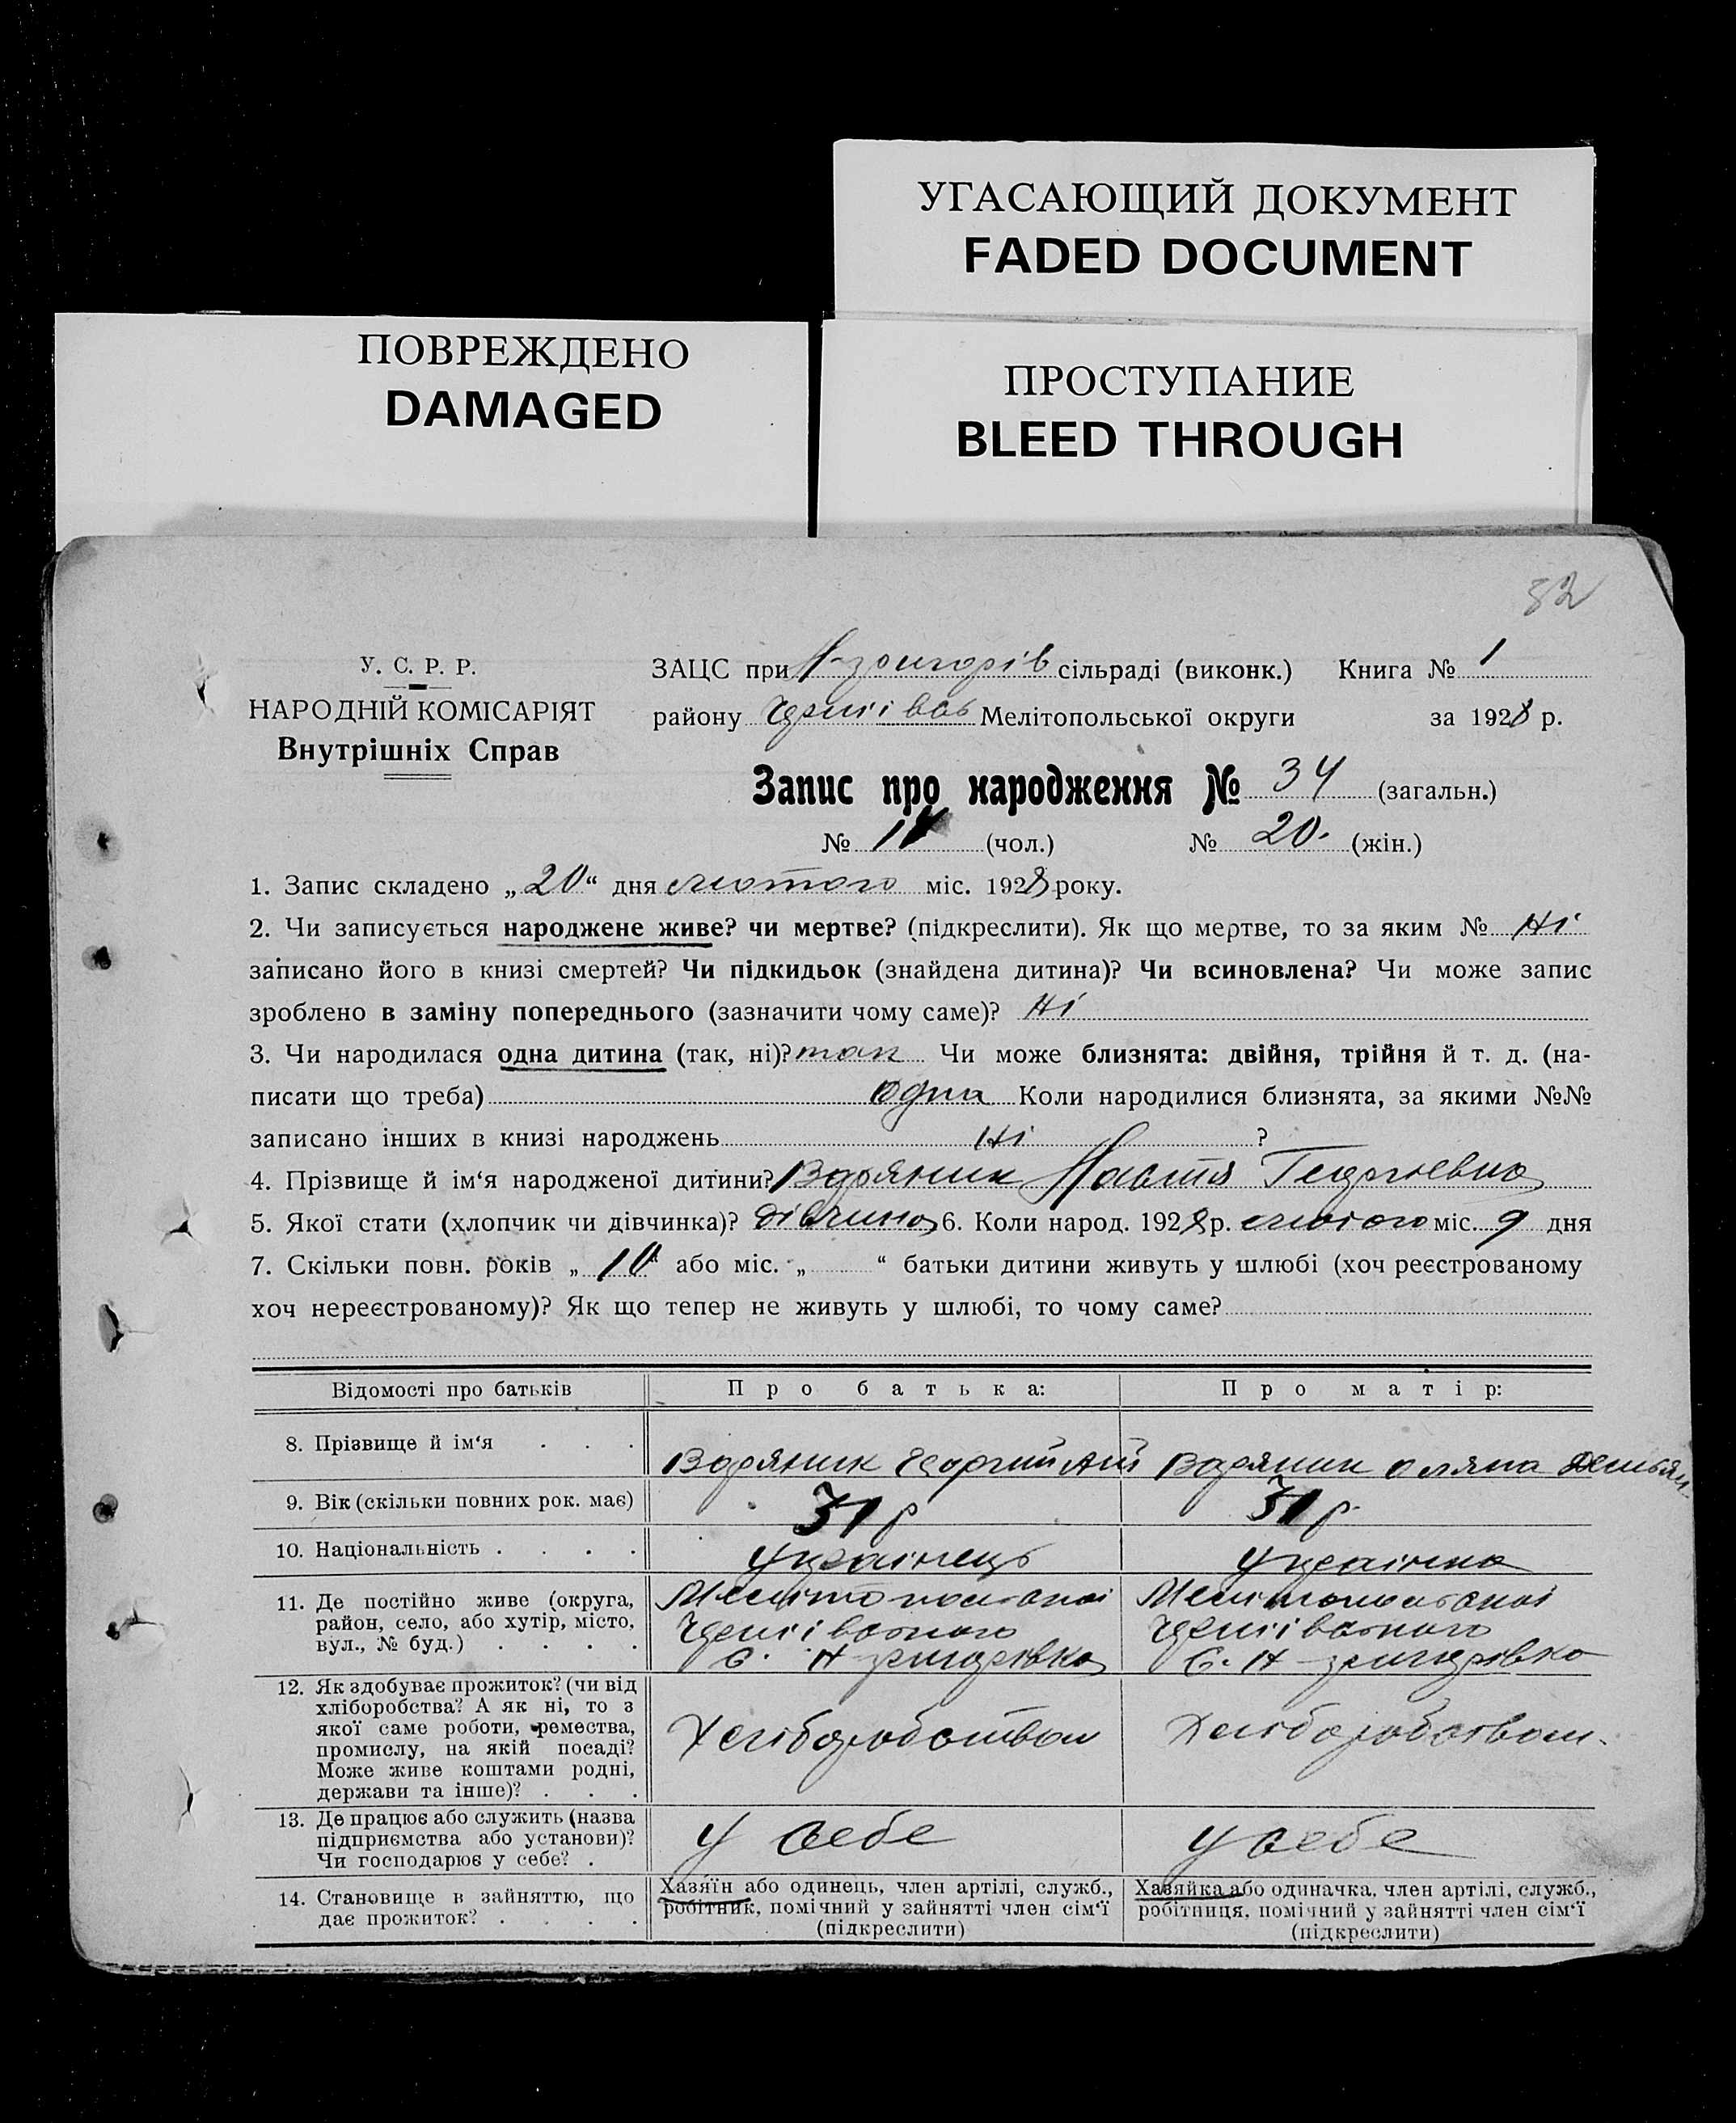 УГАСАЮЩИЙ ДОКУМЕНТ
FADED DOCUMENT
ПОВРЕЖДЕНО
DAMAGED
ПРОСТУПАНИЕ
BLEED THROUGH
82
У. С. Р. Р.
НАРОДНІЙ КОМІСАРІЯТ
Внутрішніх Справ
ЗАЦС при Н-григорів сільраді (виконк.) Книга № 1
району Черніївсь Мелітопольської округи за 1928 р.
Запис про народження № 34 (загальн.)
№ 14 (чол.) № 20. (жін.)
1. Запис складено „20“ дня лютого міс. 1928 року.
2. Чи записується народжене живе? чи мертве? (підкреслити). Як що мертве, то за яким № Ні
записано його в книзі смертей? Чи підкидьок (знайдена дитина)? Чи всиновлена? Чи може запис
зроблено в заміну попереднього (зазначити чому саме)? Ні
3. Чи народилася одна дитина (так, ні)? так Чи може близнята: двійня, трійня й т. д. (на-
писати що треба) одна Коли народилися близнята, за якими №№
записано інших в книзі народжень Ні ?
4. Прізвище й ім‘я народженої дитини? Варяник Настя Георгіевна
5. Якої стати (хлопчик чи дівчинка)? дівчина 6. Коли народ. 1928 р. лютого міс. 9 дня
7. Скільки повн. років „10“ або міс. „ “ батьки дитини живуть у шлюбі (хоч реєстрованому
хоч нереєстрованому)? Як що тепер не живуть у шлюбі, то чому саме?
Відомості про батьків
Про батька:
Про матір:
8. Прізвище й ім‘я . . .
Варяник Георгий
Варяник Оляна Демьян
9. Вік (скільки повних рок. має)
31 р
31 р
10. Національність . . . .
Українець
Українка
11. Де постійно живе (округа,
район, село, або хутір, місто,
вул., № буд.) . . . .
Мелітопольскої
Черніівського
С. Н-григорівка
Мелітопольскої
Черніівського
С. Н-григорівка
12. Як здобуває прожиток? (чи від
хліборобства? А як ні, то з
якої саме роботи, ремества,
промислу, на якій посаді?
Може живе коштами родні,
держави та інше)? . . .
Хліборобством
Хліборобством.
13. Де працює або служить (назва
підприємства або установи)?
Чи господарює у себе? .
У себе
у себе
14. Становище в зайняттю, що
дає прожиток? . . . .
Хазяїн або одинець, член артілі, служб.,
робітник, помічний у зайнятті член сім‘ї
(підкреслити)
Хазяйка або одиначка, член артілі, служб.,
робітниця, помічний у зайнятті член сім‘ї
(підкреслити)